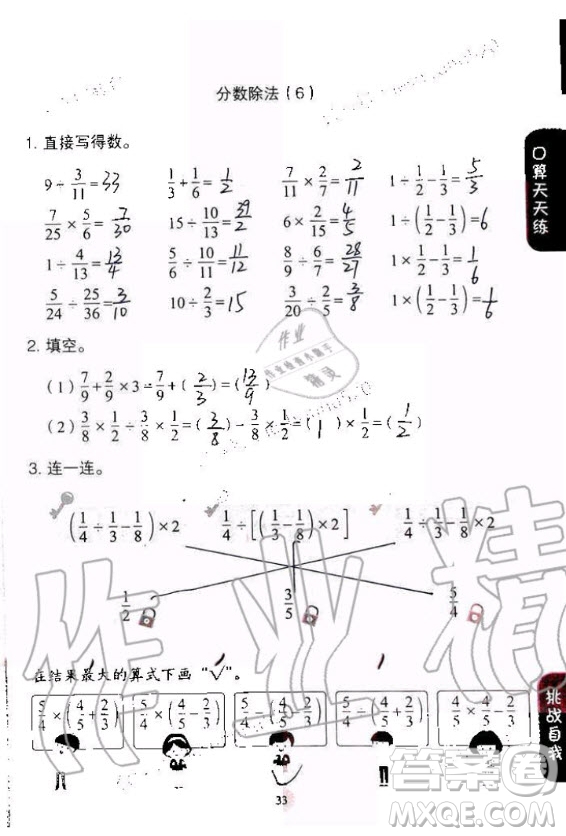 分数除法(6)
1. 直接写得数。
9÷3/11=33 1/3+1/6=1/2 7/11×2/7=2/11 1÷1/2-1/3=5/3
7/25×5/6=7/30 15÷10/13=39/2 6×2/15=4/5 1÷(1/2-1/3)=6
1÷4/13=13/4 5/6÷10/11=11/12 8/9÷6/7=28/27 1×1/2-1/3=1/6
5/24÷25/36=3/10 10÷2/3=15 3/20÷2/5=3/8 1×(1/2-1/3)=1/6
口算天天练
2. 填空。
(1) 7/9+2/9×3=7/9+(2/3)=(13/9)
(2) 3/8×1/2÷3/8×1/2=(3/8)÷(3/8)×(1)×1/2=(1/2)
3. 连一连。
(1/4÷1/3-1/8)×2 1/4÷[(1/3-1/8)×2] 1/4÷1/3-1/8×2
1/2 3/5 5/4
在结果最大的算式下画“√”。
5/4×(4/5+2/3) 5/4×(4/5-2/3) 5/4-(4/5-2/3) 5/4÷(4/5+2/3) 4/5×5/4-2/3
挑战自我
33
作业
精灵
作业精
答案圈
MXQE.COM